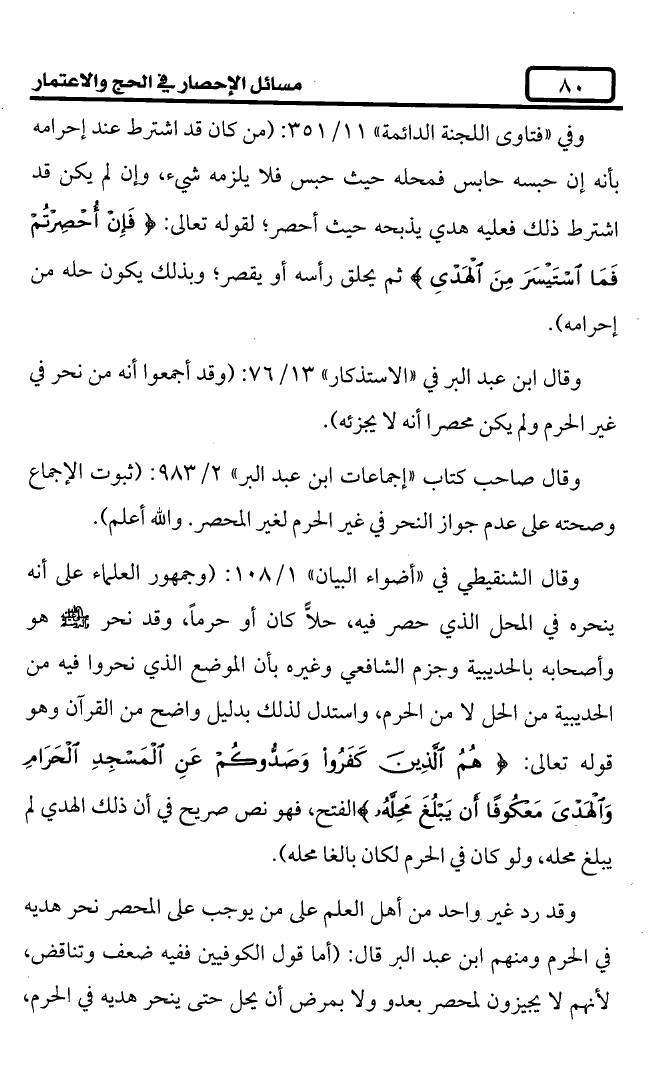 ٨٠
مسائل الإحصار في الحج والاعتمار
وفي «فتاوى اللجنة الدائمة» ١١/ ٣٥١: (من كان قد اشترط عند إحرامه
بأنه إن حبسه حابس فمحله حيث حبس فلا يلزمه شيء، وإن لم يكن قد
اشترط ذلك فعليه هدي يذبحه حيث أحصر؛ لقوله تعالى: ﴿ فَإِنْ أُحْصِرْتُمْ
فَمَا ٱسْتَيْسَرَ مِنَ ٱلْهَدْيِ ﴾ ثم يحلق رأسه أو يقصر؛ وبذلك يكون حله من
إحرامه).
وقال ابن عبد البر في «الاستذكار» ١٣/ ٧٦: (وقد أجمعوا أنه من نحر في
غير الحرم ولم يكن محصرا أنه لا يجزئه).
وقال صاحب كتاب «إجماعات ابن عبد البر» ٢/ ٩٨٣: (ثبوت الإجماع
وصحته على عدم جواز النحر في غير الحرم لغير المحصر. والله أعلم).
وقال الشنقيطي في «أضواء البيان» ١/ ١٠٨: (وجمهور العلماء على أنه
ينحره في المحل الذي حصر فيه، حلاًّ كان أو حرماً، وقد نحر ﷺ هو
وأصحابه بالحديبية وجزم الشافعي وغيره بأن الموضع الذي نحروا فيه من
الحديبية من الحل لا من الحرم، واستدل لذلك بدليل واضح من القرآن وهو
قوله تعالى: ﴿ هُمُ ٱلَّذِينَ كَفَرُوا۟ وَصَدُّوكُمْ عَنِ ٱلْمَسْجِدِ ٱلْحَرَامِ
وَٱلْهَدْىَ مَعْكُوفًا أَن يَبْلُغَ مَحِلَّهُۥ ﴾الفتح، فهو نص صريح في أن ذلك الهدي لم
يبلغ محله، ولو كان في الحرم لكان بالغا محله).
وقد رد غير واحد من أهل العلم على من يوجب على المحصر نحر هديه
في الحرم ومنهم ابن عبد البر قال: (أما قول الكوفيين ففيه ضعف وتناقض،
لأنهم لا يجيزون لمحصر بعدو ولا بمرض أن يحل حتى ينحر هديه في الحرم،